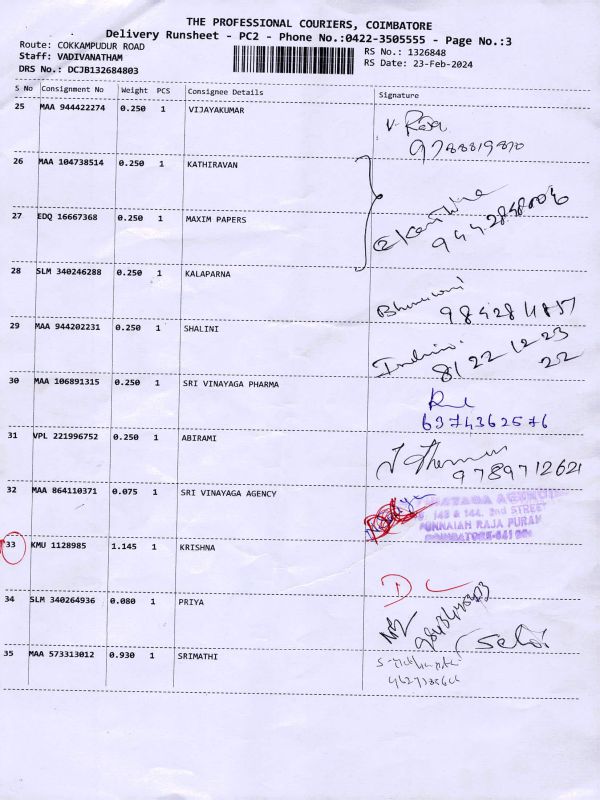 THE PROFESSIONAL COURIERS, COIMBATORE
Delivery Runsheet - PC2 - Phone No.:0422-3505555 - Page No.:3
Route: COKKAMPUDUR ROAD
Staff: VADIVANATHAM
DRS No.: DCJB132684803
RS No.: 1326848
RS Date: 23-Feb-2024
S No Consignment No Weight PCS Consignee Details Signature
25 MAA 944422274 0.250 1 VIJAYAKUMAR
26 MAA 104738514 0.250 1 KATHIRAVAN
27 EDQ 16667368 0.250 1 MAXIM PAPERS
28 SLM 340246288 0.250 1 KALAPARNA
29 MAA 944202231 0.250 1 SHALINI
8122 1223
22
30 MAA 106891315 0.250 1 SRI VINAYAGA PHARMA
6374362576
31 VPL 221996752 0.250 1 ABIRAMI
9789712621
32 MAA 864110371 0.075 1 SRI VINAYAGA AGENCY
143 & 144, 2nd STREET
PONNAIAH RAJA PURAM
COIMBATORE-641 001
33 KMU 1128985 1.145 1 KRISHNA
34 SLM 340264936 0.080 1 PRIYA
35 MAA 573313012 0.930 1 SRIMATHI